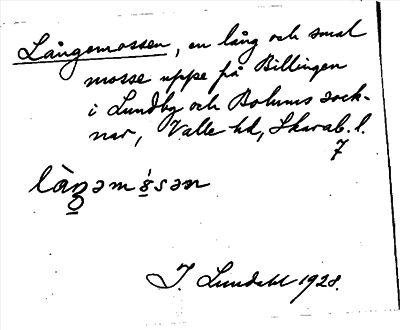 Långemossen, en lång och smal
mosse uppe på Billingen
i Lundby och Bolums sock-
nar, Valle hd, Skarab. l.
7
làŋəmósən
J. Lundahl 1928.